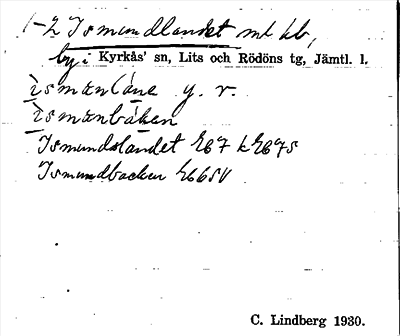 1-2 Ismundlandet mt kb,
by i Kyrkås' sn, Lits och Rödöns tg, Jämtl. l.
ìsmanláne y. r.
ìsmanbáken
Ismundslandet
Ismundbacken
C. Lindberg 1930.